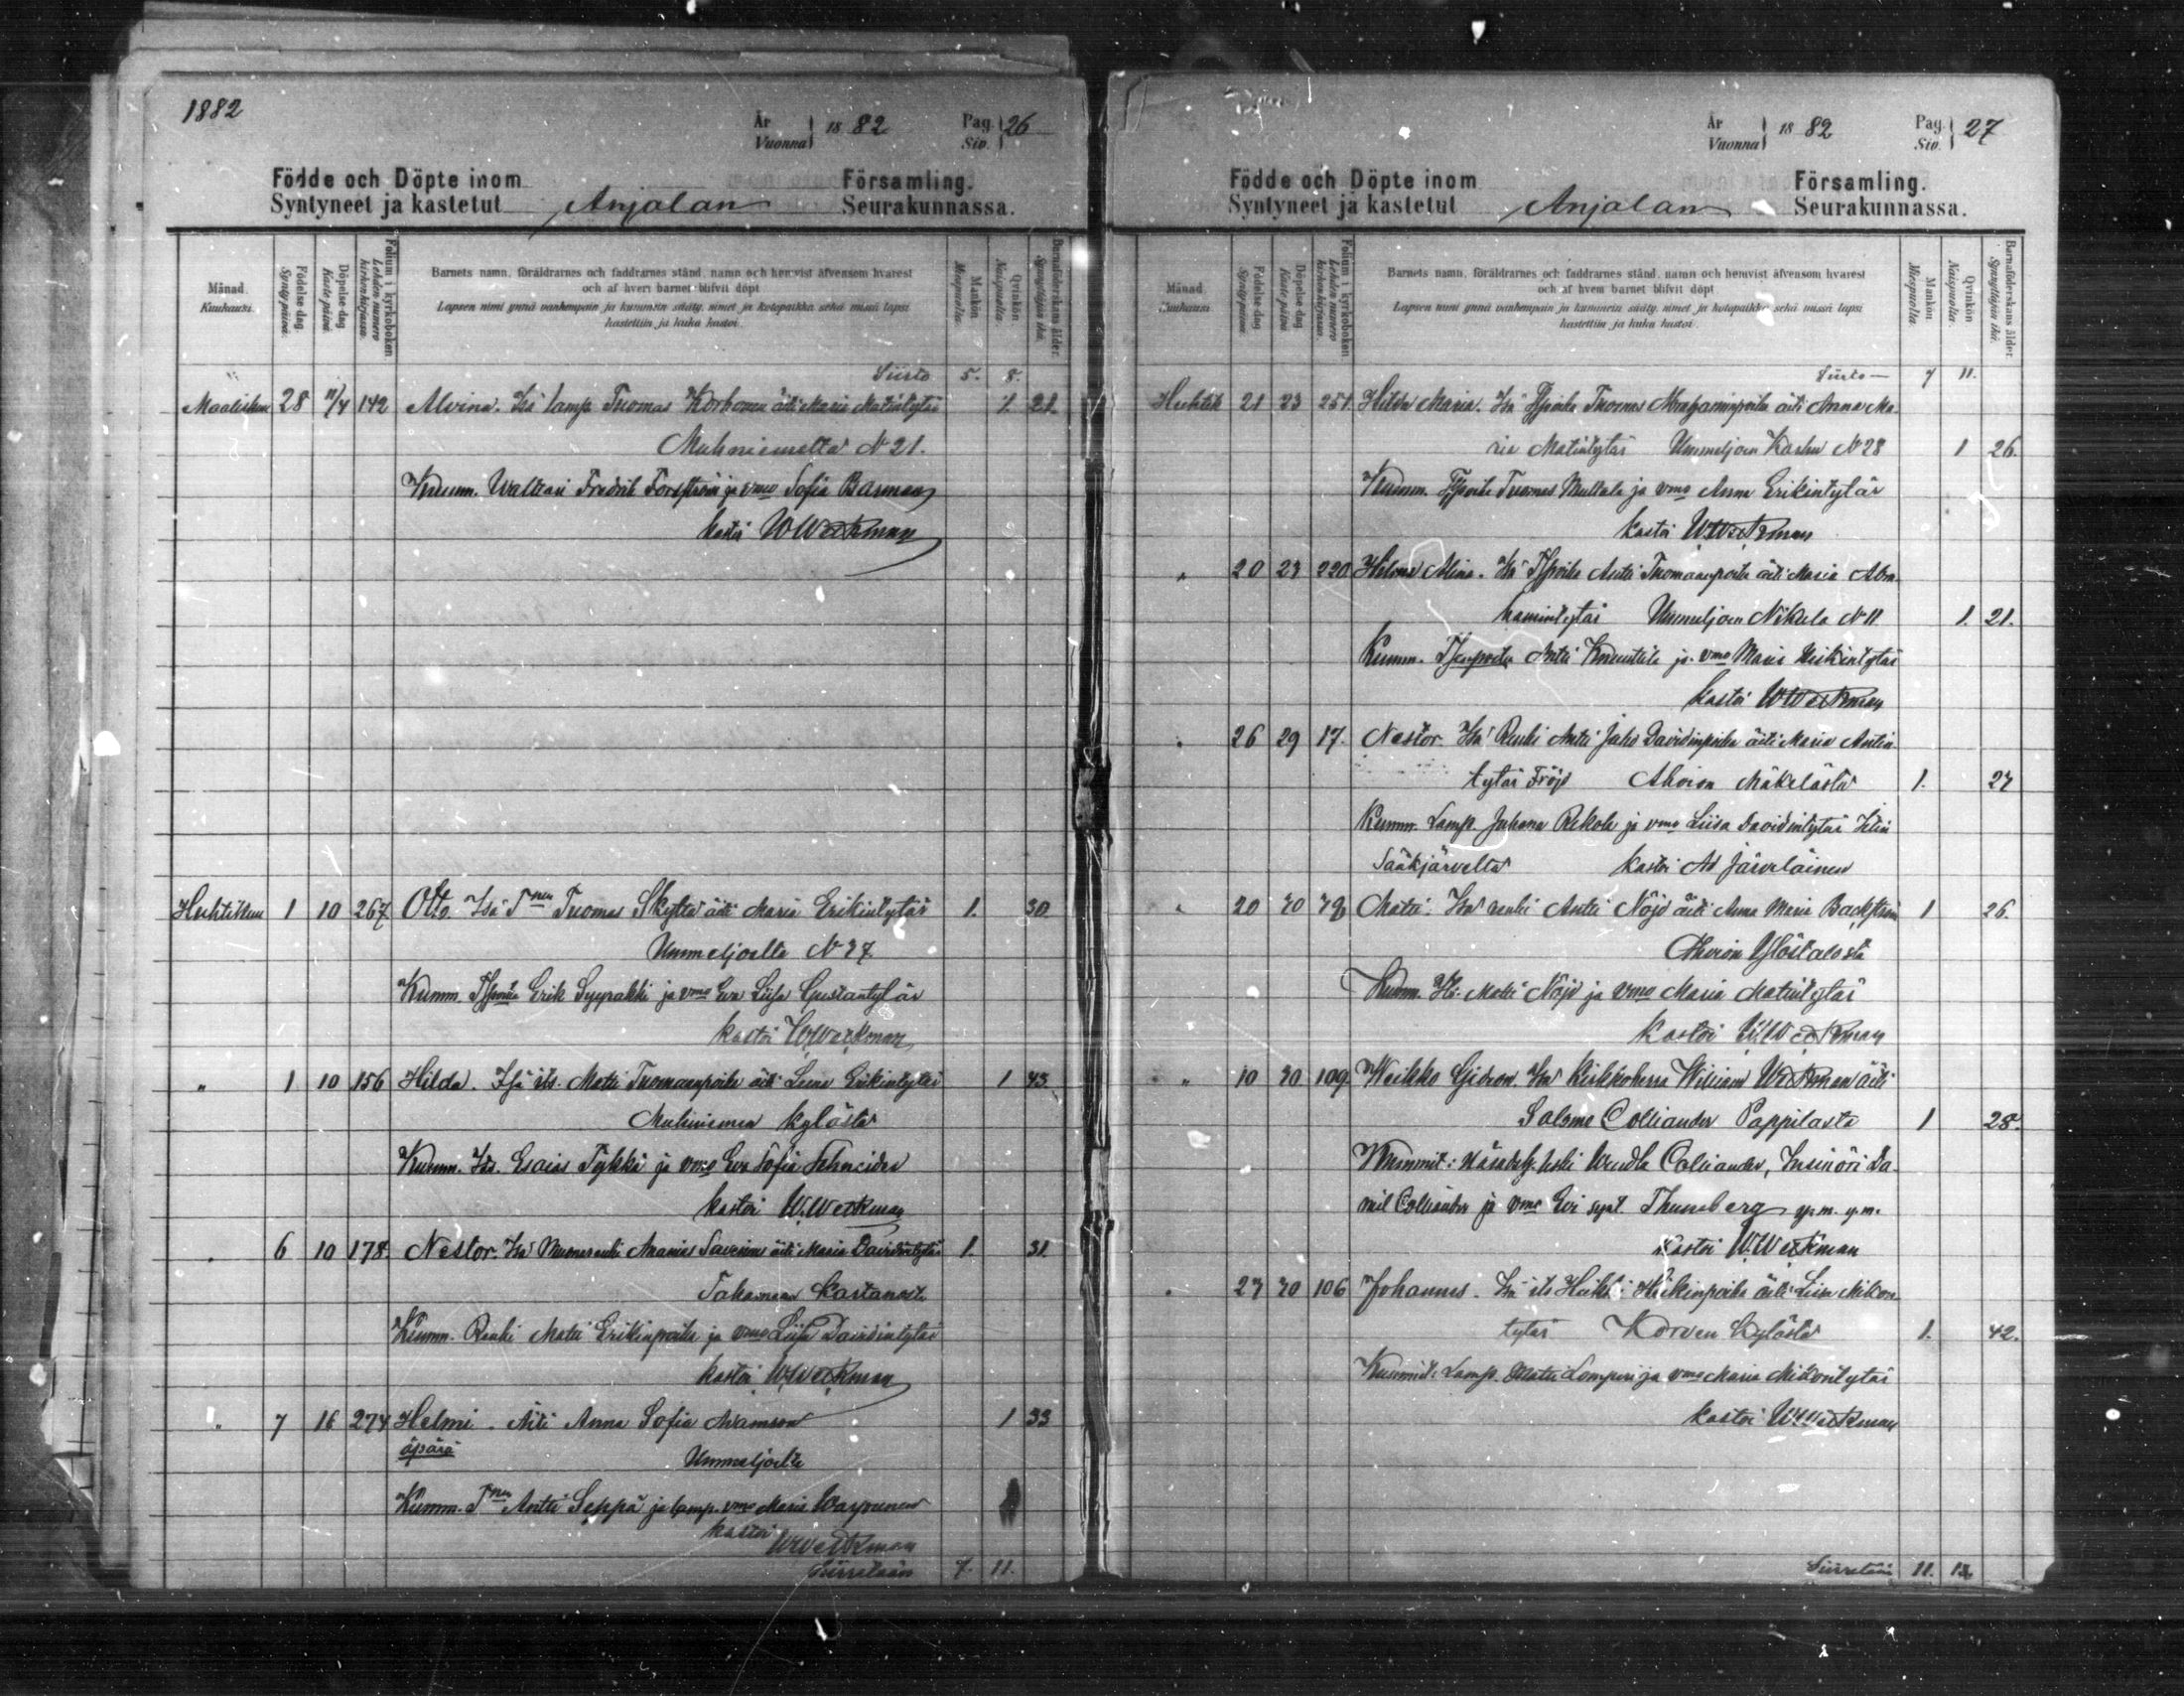 1882
År
Vuonna 1882 Pag. Siv. 26
Födde och Döpte inom Församling.
Syntyneet ja kastetut Anjalan Seurakunnassa.
Månad. Kuukausi.
Födelse dag. Synty päivä.
Döpelse dag Kaste päivä.
Folium i kyrkoboken Lehden numero kirkonkirjassa.
Barnets namn, föräldrarnes och faddrarnes stånd, namn och hemvist äfvensom hvarest
och af hvem barnet blifvit döpt
Lapsen nimi ynnä vanhempain ja kummein sääty, nimet ja kotopaikka sekä missä lapsi
kastettiin ja kuka kastoi.
Mankön Miespuolta.
Qvinkön Naispuolta.
Barnaföderskans ålder. Synnyttäjän ikä.
Siirto 5. 8.
Maalisku 28 11/4 142 Alvina. Isä lamp Tuomas Korhonen äiti Maria Matintytär 1. 21.
Muhniemeltä N 21.
Kumm. Fredrik Forsström ja vmo Sofia Barman
kastoi W Weckman
Huhtikuu 1 10 267 Otto. Isä Tnen Tuomas Skyttä äiti Maria Erikintytär 1. 30
Ummeljoelta N 37.
Kumm. Erik Sypräkki ja vmo Eva Liisa Gustantytär
kastoi W Weckman
" 1 10 156 Hilda. Isä its. Matti Tuomaanpoika äiti Leena Erikintytär 1 43.
Muhniemen kylästä
Kumm. Its. Esaias Tykkä ja vmo Eva Sofia Schneider
kastoi W. Weckman
" 6 10 178. Nestor. Isä Ananias Savenius äiti Maria Davidintytär 1. 31.
Kumm. Renki Matti Erikinpoika ja vmo Liisa Davidintytär
kastoi W Weckman
" 7 16 274 Helmi. Äiti Anna Sofia Adamson 1 33
äpärä
Ummeljoelta
Kumm. Tnen Antti Seppä ja lamp. vmo Maria Wäyrynen
kastoi
W Weckman
Siirretään 7. 11.
År
Vuonna 1882 Pag. Siv. 27
Födde och Döpte inom Församling.
Syntyneet ja kastetut Anjalan Seurakunnassa.
Månad. Kuukausi.
Födelse dag Synty päivä.
Döpelse dag Kaste päivä
Folium i kyrkoboken Lehden numero kirkonkirjassa.
Barnets namn, föräldrarnes och faddrarnes stånd, namn och hemvist äfvensom hvarest
och af hvem barnet blifvit döpt
Lapsen nimi ynnä vanhempain ja kummein sääty, nimet ja kotopaikka sekä missä lapsi
kastettiin ja kuka kastoi.
Mankön Miespuolta.
Qvinkön Naispuolta.
Barnaföderskans ålder. Synnyttäjän ikä.
Siirto 7 11.
Huhtik 21 23 251 Hilda Maria. Isä Tuomas Abrahaminpoika äiti Anna Ma-
ria Matintytär Ummeljoen N 28 1 26.
Kumm. Tuomas Mullala ja vmo Anna Erikintytär
kastoi W. Weckman
" 20 23 220 Hilma Alina. Isä Antti Tuomaanpoika äiti Maria Abra
hamintytär Ummeljoen Nikula N 11 1. 21.
Kumm. Antti ja vmo Maria Heikintytär
kastoi W Weckman
" 26 29 17. Nestor. Isä Renki Antti Juho Davidinpoika äiti Maria Antin
tytär Fröjd Ahvion Mäkelästä 1. 27
Kumm. Lamp. Juhana Rekola ja vmo Liisa Davidintytär Iitin
Sääskjärveltä kastoi Ad Järveläinen
" 20 30 79 Matti. Isä renki Antti Nöjd äiti Anna Maria Backström 1 26.
Ahvion Ylöstalosta
Kumm. Its. Matti Nöjd ja vmo Maria Matintytär
kastoi W. Weckman
" 10 30 109 Weikko Gideon. Isä Kirkkoherra William Weckman äiti
Salome Colliander Pappilasta 1 28.
Kummit: leski Wendla Colliander, Insinöri Da-
niel Colliander ja vmo Evi synt Thuneberg y. m. y. m.
kastoi W. Weckman
" 27 30 106 Johannes. Isä its Heikki Heikinpoika äiti Liisa Mikon
tytär Korven kylästä 1. 42.
Kummit: Lamp. Matti Lomperi ja vmo Maria Mikontytär
kastoi W Weckman
Siirretään 11. 13.